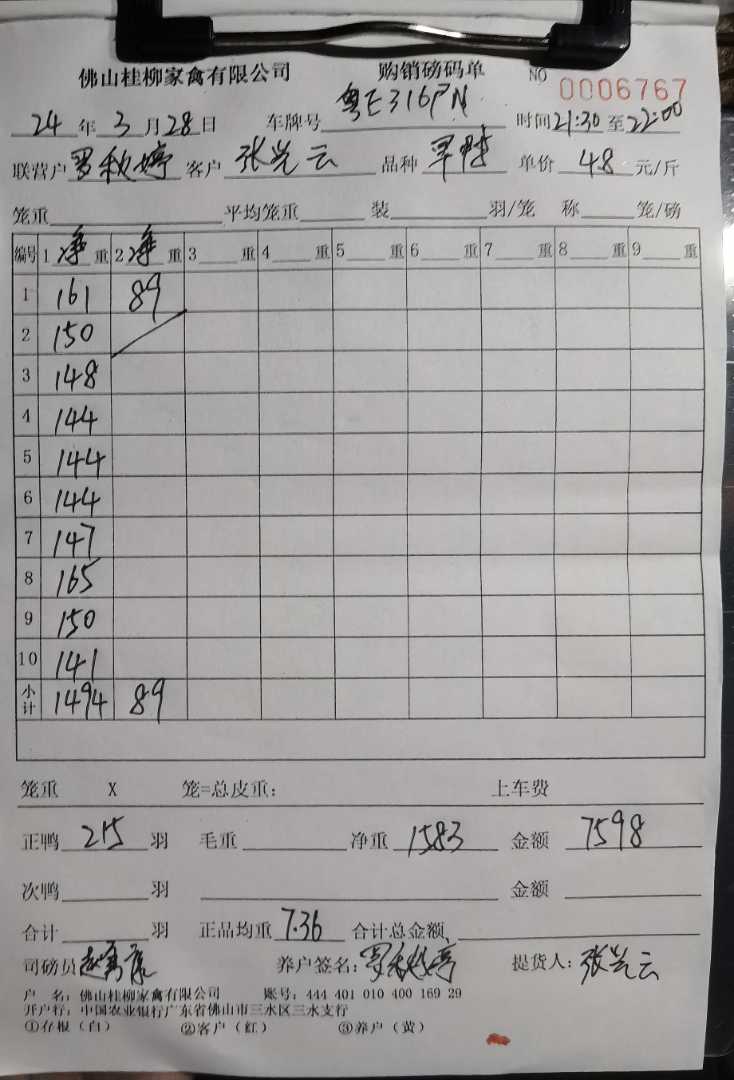 佛山桂柳家禽有限公司 购销磅码单 NO 0006767
24年3月28日 车牌号 粤E316PN 时间21:30至22:00
联营户 罗秋婷 客户 张光云 品种 单价 4.8 元/斤
笼重 平均笼重 装 羽/笼 称 笼/磅
编号 1净重 2净重 3 重 4 重 5 重 6 重 7 重 8 重 9 重
1 161 89
2 150
3 148
4 144
5 144
6 144
7 147
8 165
9 150
10 141
小计 1494 89
笼重 X 笼=总皮重: 上车费
正鸭 215 羽 毛重 净重 1583 金额 7598
次鸭 羽 金额
合计 羽 正品均重 7.36 合计总金额
司磅员 养户签名: 罗秋婷 提货人: 张光云
户 名: 佛山桂柳家禽有限公司 账号: 444 401 010 400 169 29
开户行: 中国农业银行广东省佛山市三水区三水支行
①存根(白) ②客户(红) ③养户(黄)